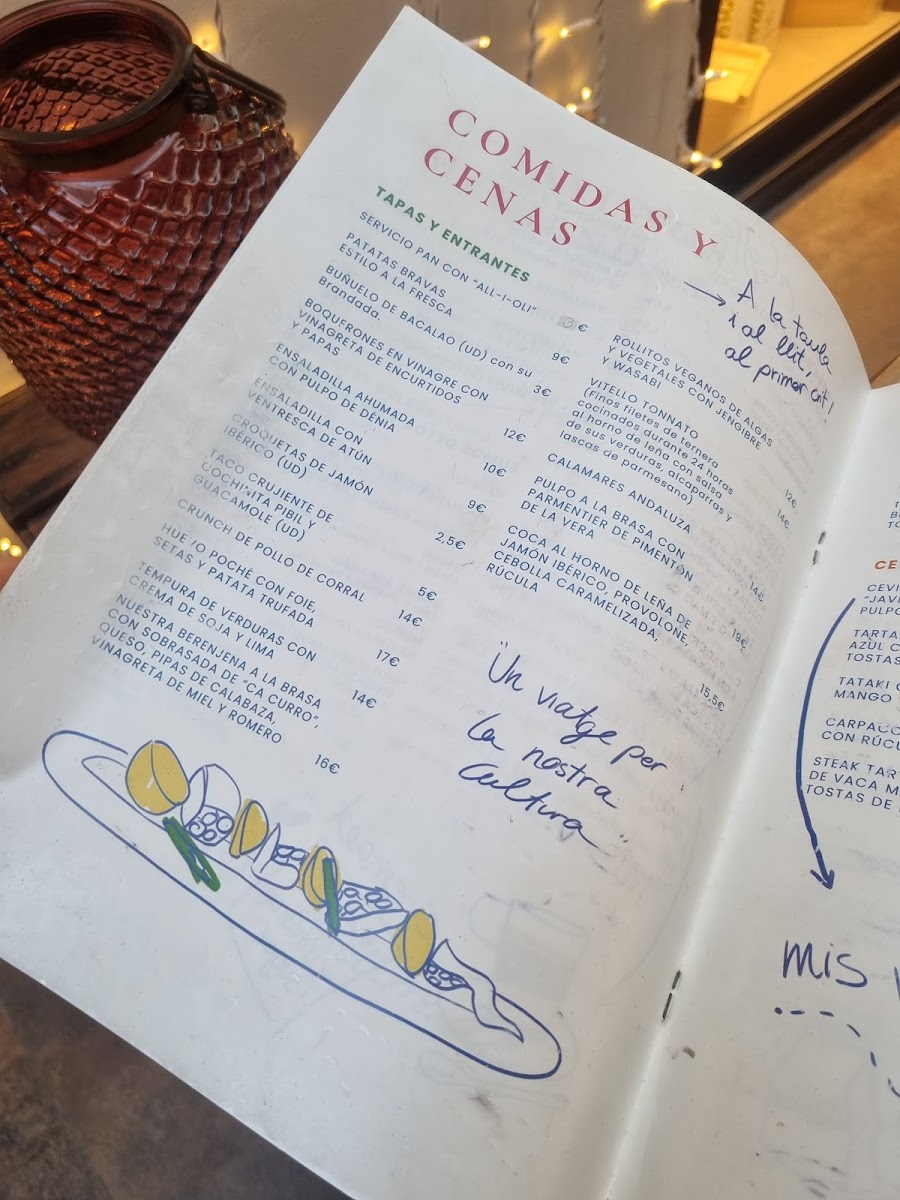 COMIDAS Y
CENAS
TAPAS Y ENTRANTES
SERVICIO PAN CON "ALL-I-OLI"
3€
PATATAS BRAVAS
ESTILO A LA FRESCA
9€
BUÑUELO DE BACALAO (UD) con su
Brandada.
3€
BOQUERONES EN VINAGRE CON
VINAGRETA DE ENCURTIDOS
Y PAPAS
12€
ENSALADILLA AHUMADA
CON PULPO DE DÉNIA
10€
ENSALADILLA CON
VENTRESCA DE ATÚN
9€
CROQUETAS DE JAMÓN
IBÉRICO (UD)
2,5€
TACO CRUJIENTE DE
COCHINITA PIBIL Y
GUACAMOLE (UD)
5€
CRUNCH DE POLLO DE CORRAL
14€
HUEVO POCHÉ CON FOIE,
SETAS Y PATATA TRUFADA
17€
TEMPURA DE VERDURAS CON
CREMA DE SOJA Y LIMA
14€
NUESTRA BERENJENA A LA BRASA
CON SOBRASADA DE "CA CURRO",
QUESO, PIPAS DE CALABAZA,
VINAGRETA DE MIEL Y ROMERO
16€
A la taula
i al llit,
al primer crit!
ROLLITOS VEGANOS DE ALGAS
Y VEGETALES CON JENGIBRE
Y WASABI
12€
VITELLO TONNATO
(Finos filetes de ternera
cocinados durante 24 horas
al horno de leña con salsa
de sus verduras, alcaparras y
lascas de parmesano)
14€
CALAMARES ANDALUZA
14€
PULPO A LA BRASA CON
PARMENTIER DE PIMENTÓN
DE LA VERA
19€
COCA AL HORNO DE LEÑA DE
JAMÓN IBÉRICO, PROVOLONE,
CEBOLLA CARAMELIZADA,
RÚCULA
15,5€
"Un viatge per
la nostra
cultura"
CE
CEVI
"JAVI
PULPO
TARTA
AZUL C
TOSTAS
TATAKI
MANGO
CARPACC
CON RÚCU
STEAK TAR
DE VACA M
TOSTAS DE
MIS